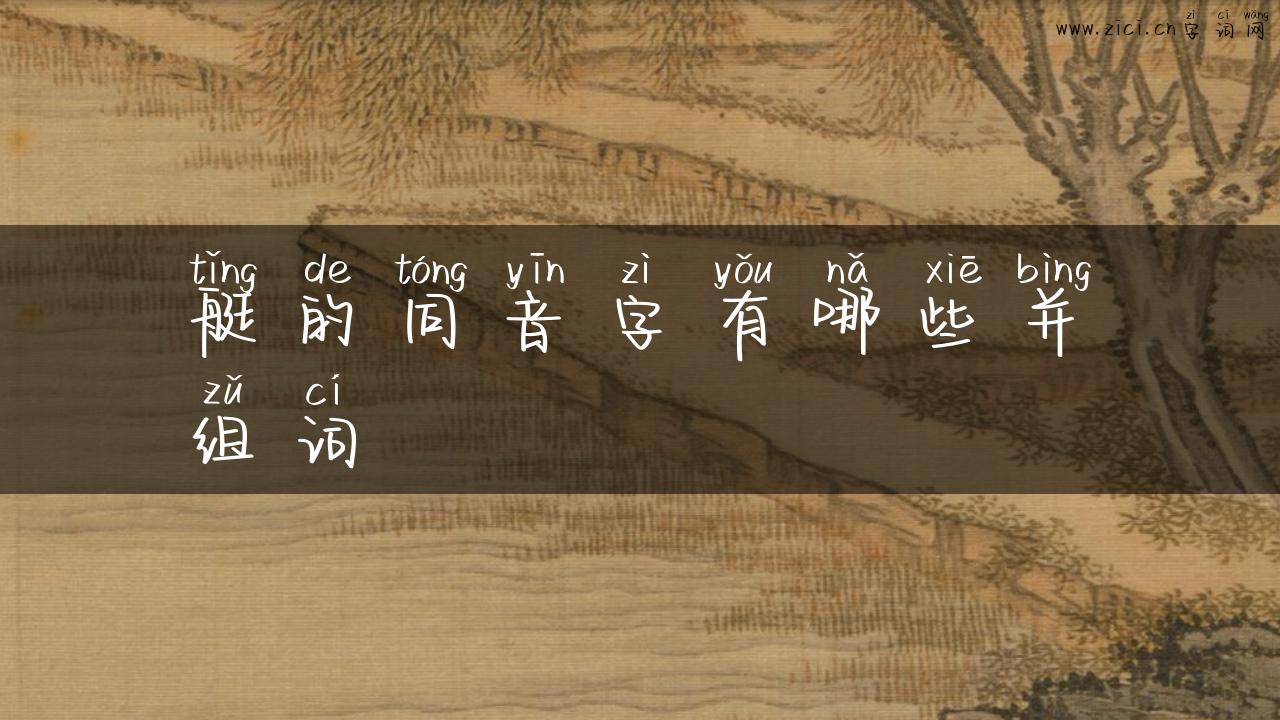 zì cí wǎng
www.zici.cn字词网
tǐng de tóng yīn zì yǒu nǎ xiē bìng
艇的同音字有哪些并
zǔ cí
组词